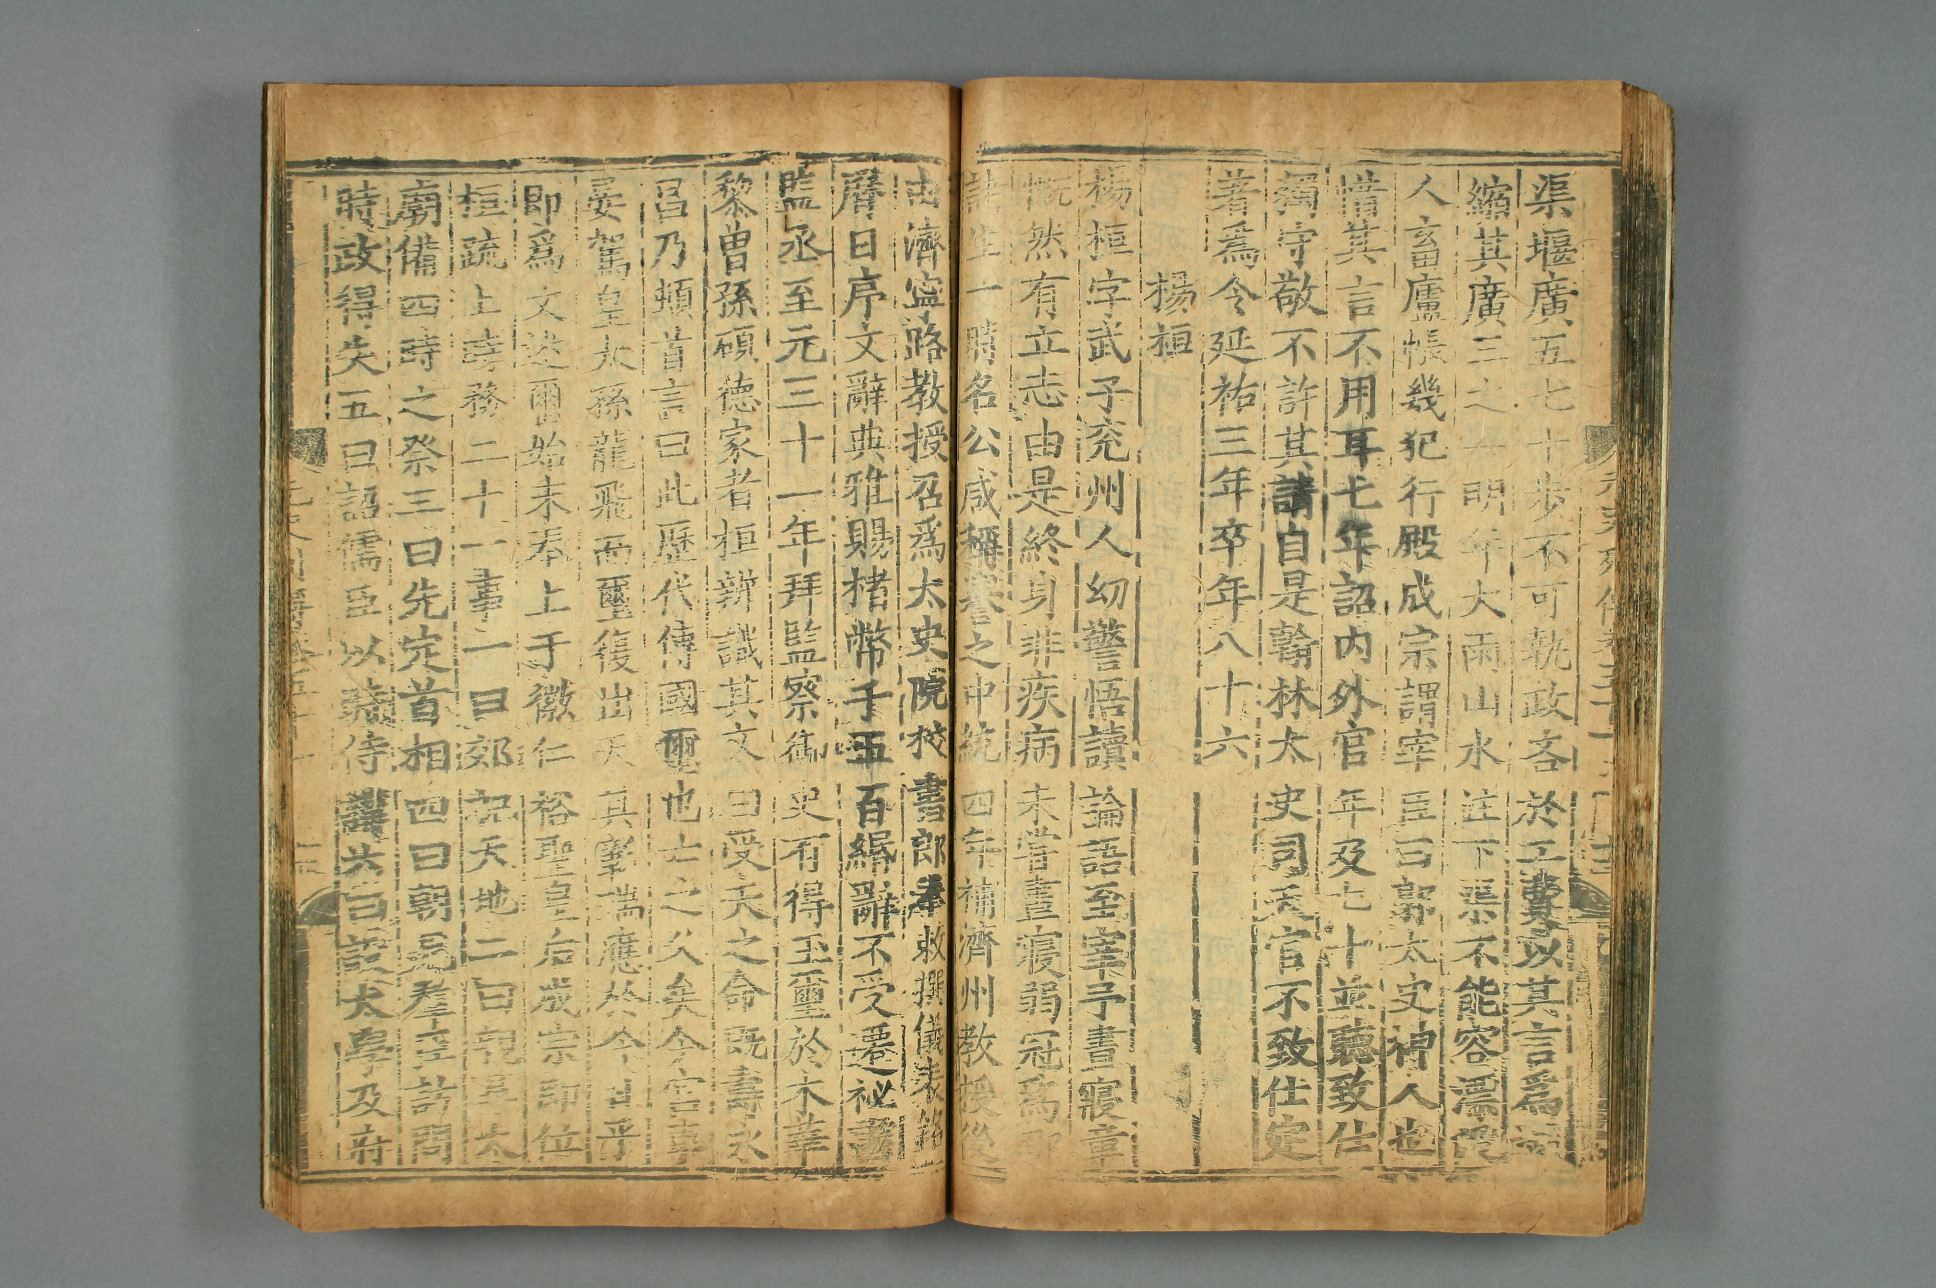 元史列傳卷五十一
渠堰廣五七十步不可執政吝於工費以其言爲過
縮其廣三之一明年大雨山水注下渠不能容漂沒
人畜廬帳幾犯行殿成宗謂宰臣曰郭太史神人也
惜其言不用耳七年詔內外官年及七十並聽致仕
獨守敬不許其請自是翰林太史司天官不致仕定
著爲令延祐三年卒年八十六
楊桓
楊桓字武子兗州人幼警悟讀論語至宰予晝寢章
慨然有立志由是終身非疾病未嘗晝寢弱冠爲郡
諸生一時名公咸稱譽之中統四年補濟州教授後
由濟寧路教授召爲太史院校書郎奉敕撰儀表銘
曆日序文辭典雅賜楮幣千五百緡辭不受遷祕書
監丞至元三十一年拜監察御史有得玉璽於木華
黎曾孫碩德家者桓辨識其文曰受天之命既壽永
昌乃頓首言曰此歷代傳國璽也亡之久矣今宮車
晏駕皇太孫龍飛而璽復出天其彰瑞應於今日乎
即爲文述璽始末奉上于徽仁裕聖皇后成宗即位
桓疏上時務二十一事一曰郊祀天地二曰親享太
廟備四時之祭三曰先定首相四曰朝見羣臣訪問
時政得失五曰詔儒臣以時侍講六曰設太學及府